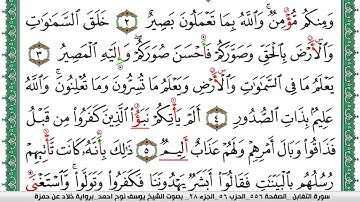 وَمِنكُم مُّؤْمِنٌ ۚ وَٱللَّهُ بِمَا تَعْمَلُونَ بَصِيرٌ ٢ خَلَقَ ٱلسَّمَٰوَٰتِ
وَٱلْأَرْضَ بِٱلْحَقِّ وَصَوَّرَكُمْ فَأَحْسَنَ صُوَرَكُمْ ۖ وَإِلَيْهِ ٱلْمَصِيرُ ٣
يَعْلَمُ مَا فِي ٱلسَّمَٰوَٰتِ وَٱلْأَرْضِ وَيَعْلَمُ مَا تُسِرُّونَ وَمَا تُعْلِنُونَ ۚ وَٱللَّهُ
عَلِيمٌۢ بِذَاتِ ٱلصُّدُورِ ٤ أَلَمْ يَأْتِكُمْ نَبَؤُا۟ ٱلَّذِينَ كَفَرُوا۟ مِن قَبْلُ
فَذَاقُوا۟ وَبَالَ أَمْرِهِمْ وَلَهُمْ عَذَابٌ أَلِيمٌ ٥ ذَٰلِكَ بِأَنَّهُۥ كَانَت تَّأْتِيهِمْ
رُسُلُهُم بِٱلْبَيِّنَٰتِ فَقَالُوٓا۟ أَبَشَرٌ يَهْدُونَنَا فَكَفَرُوا۟ وَتَوَلَّوا۟ ۚ وَّٱسْتَغْنَى
سورة التغابن _ الصفحة ٥٥٦ _ الحزب ٥٦ _ الجزء ٢٨ _ بصوت الشيخ يوسف نوح أحمد _ برواية خلاد عن حمزة